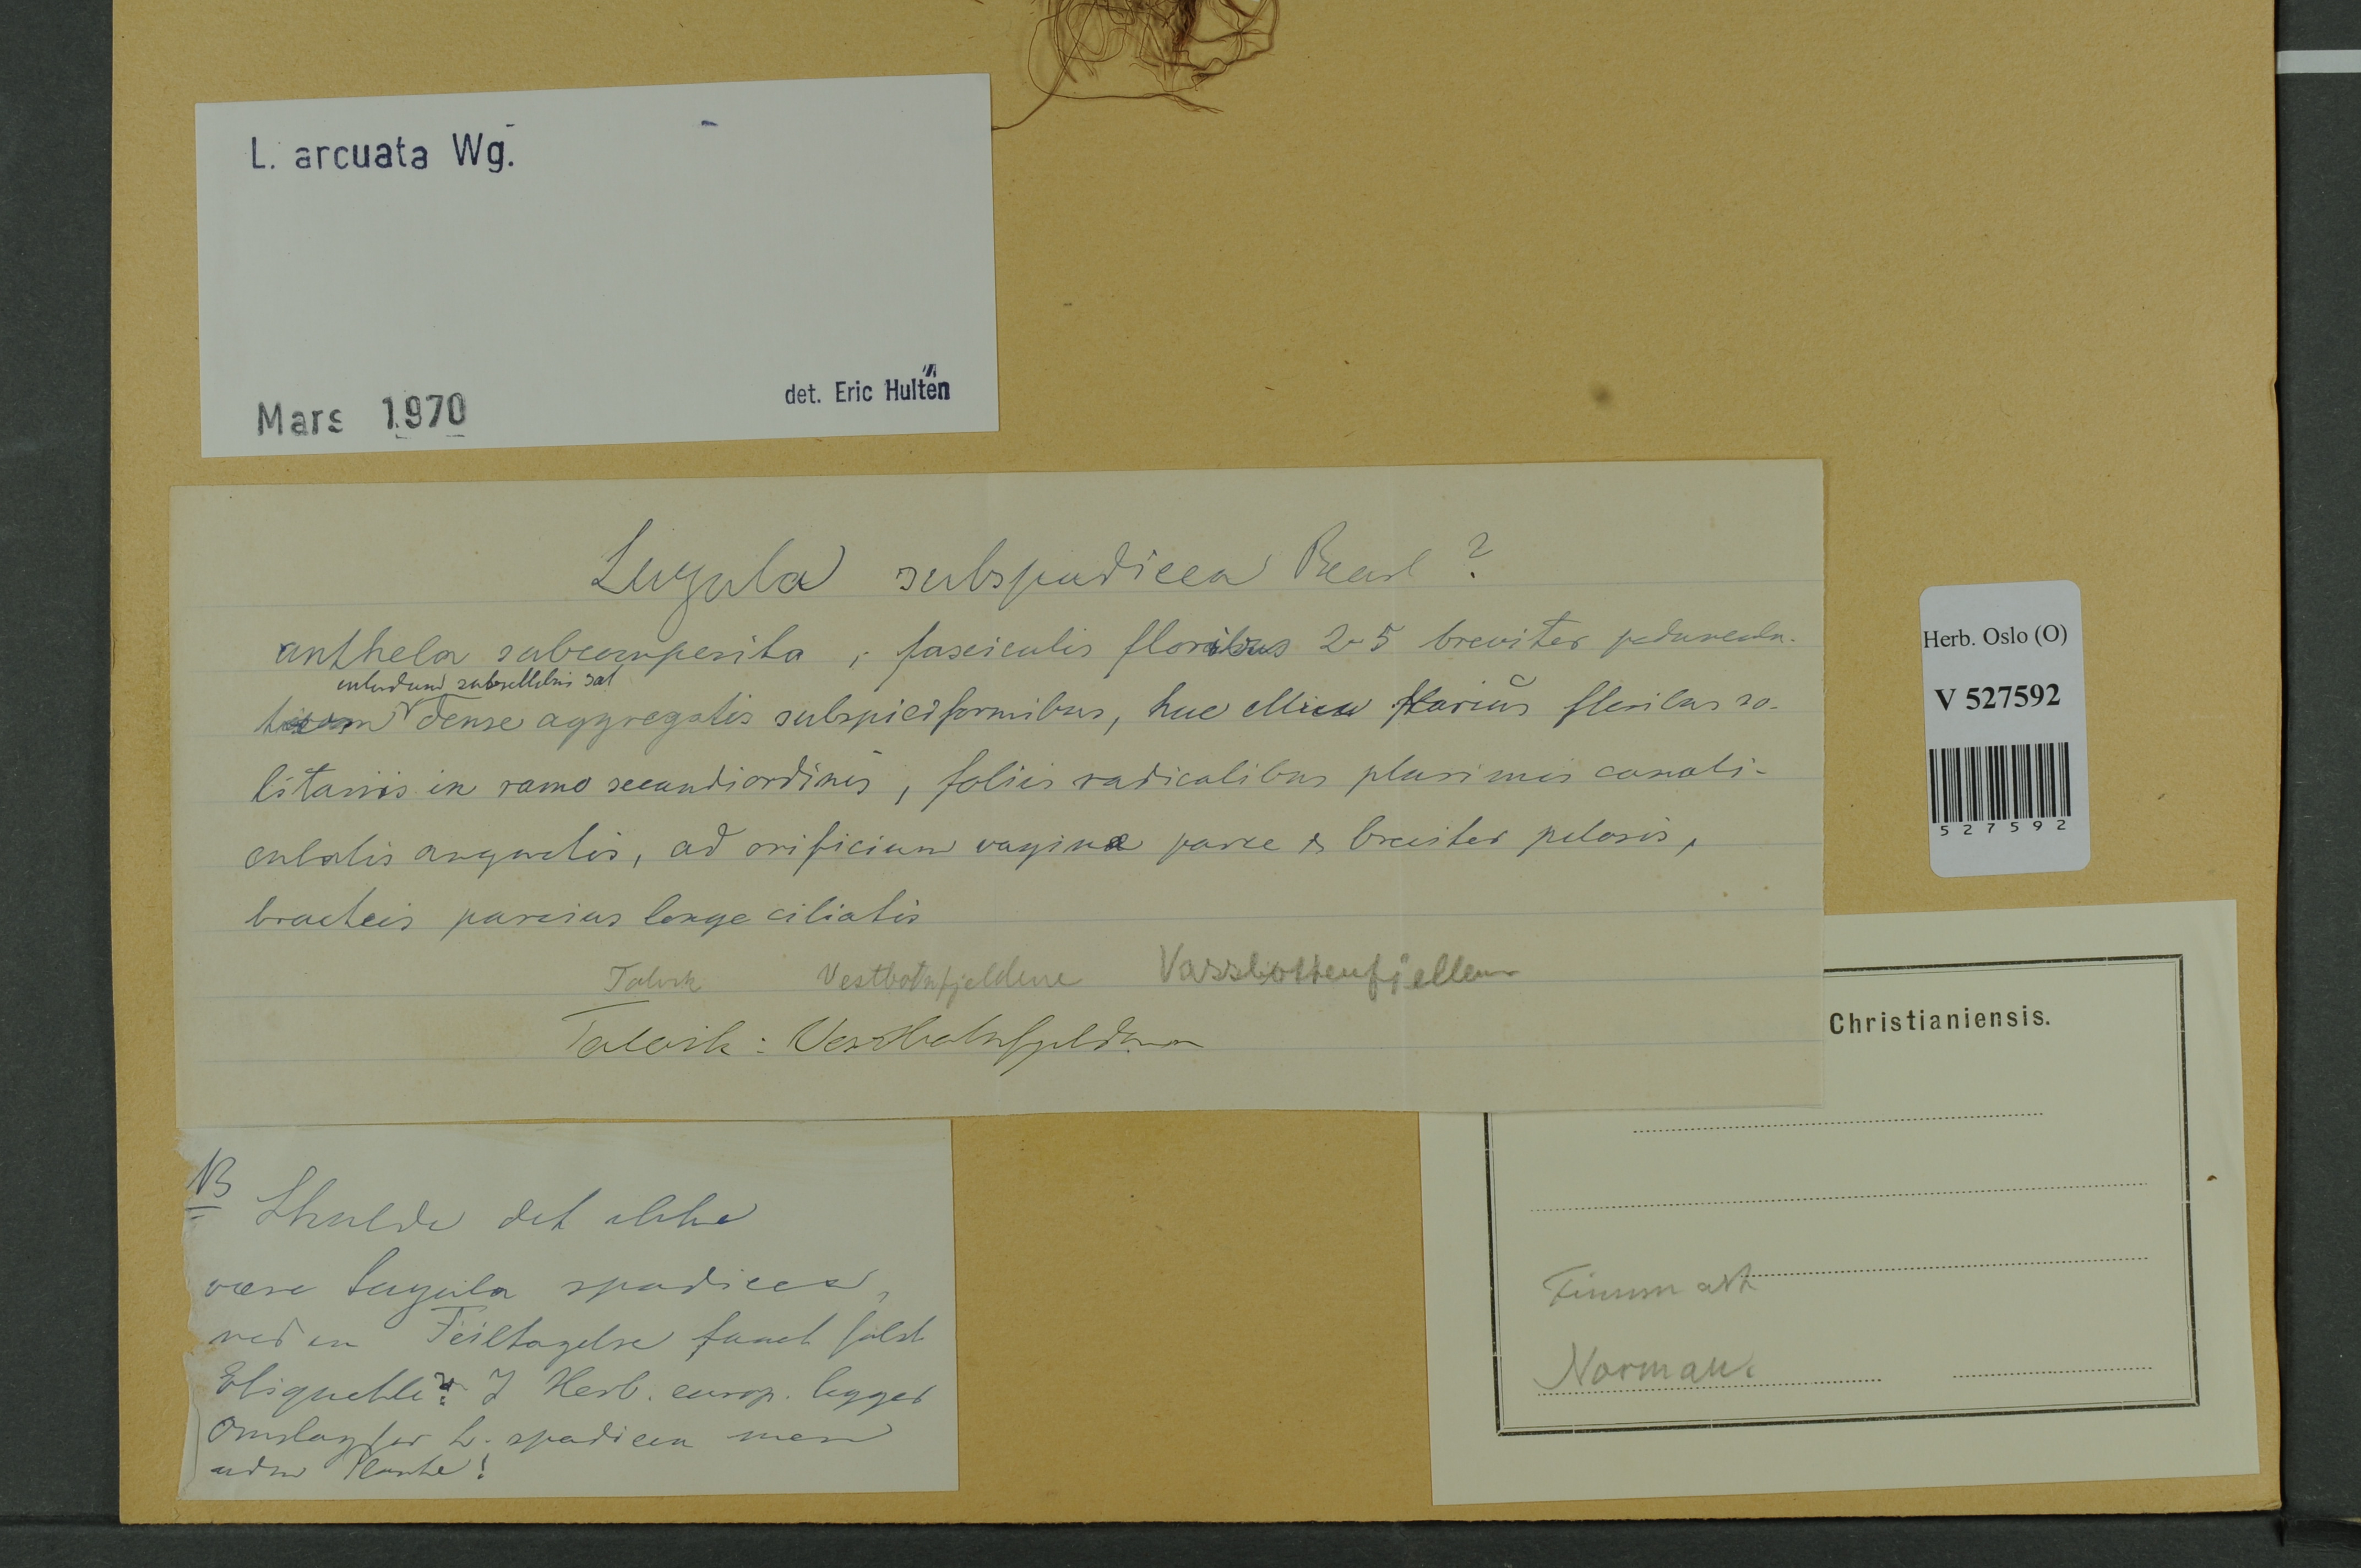 L. arcuata Wg.
Mars 1970
det. Eric Hultén
Luzula subspadicea
anthela subcomposita, fasciculis floribus 2-5 breviter peduncula-
interdum subsessilibus sat
dense aggregatis subspiciformibus, huc illuc floribus so-
litariis in ramo secundi ordinis, foliis radicalibus plurimis canali-
culatis angustis, ad orificium vaginæ parce & breviter pilosis,
bracteis parcius longe ciliatis
Talvik Vestbotnfjeldene Vassbottenfjellene
Talvik: Vestbotnfjeldene
Herb. Oslo (O)
V 527592
527592
Christianiensis.
Finnmark
Norman.
NB
Skulde det ikke
være Luzula spadicea,
ved en Feiltagelse faaet falsk
Etiquette? I Herb. europ. ligger
Omslag for L. spadicea men
uden Plante!